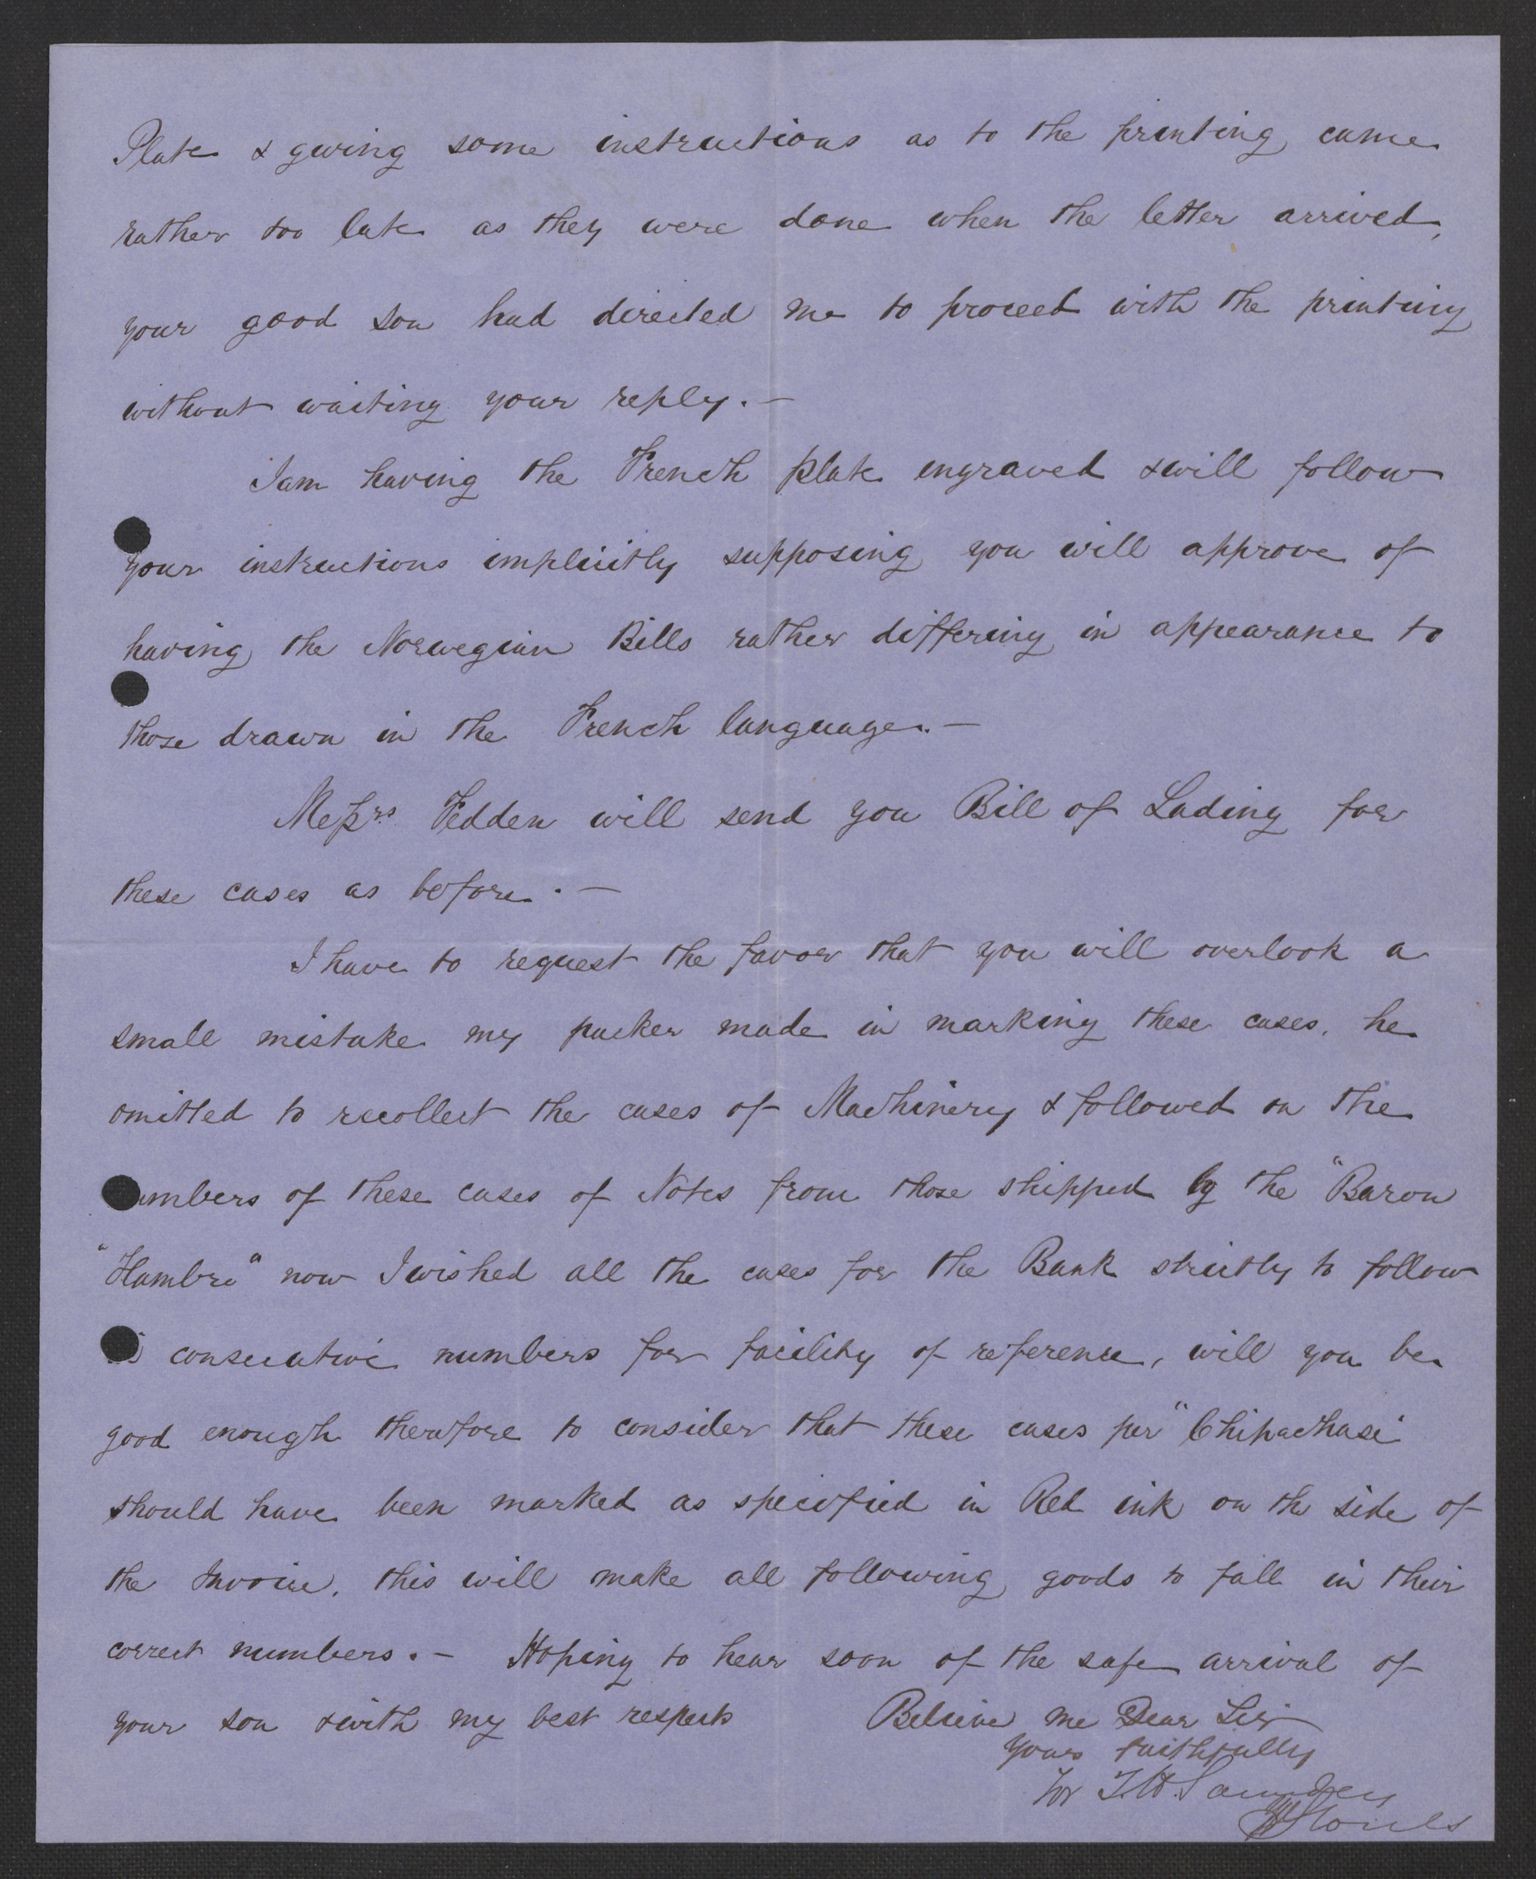 Plate & giving some instructions as to the printing, came
rather too late as they were done when the letter arrived,
your good son had directed me to proceed with the printing
without waiting your reply. —
I am having the French plate engraved & will follow
your instructions implicitly supposing you will approve of
having the Norwegian Bills rather differing in appearance to
those drawn in the French language. —
Messrs Fedden will send you Bill of Lading for
these cases as before. —
I have to request the favor that you will overlook a
small mistake my packer made in marking these cases, he
omitted to recollect the cases of Machinery & followed on the
umbers of these cases of Notes from those shipped by the "Baron
"Hambro" now I wished all the cases for the Bank strictly to follow
consecutive numbers for facility of reference, will you be
good enough therefore to consider that these cases per "Chipachase"
should have been marked as specified in Red ink on the side of
the Invoice, this will make all following goods to fall in their
correct numbers. — Hoping to hear soon of the safe arrival of
your son & with my best respects Believe me Dear Sir
Yours faithfully
for T. H. Saunders